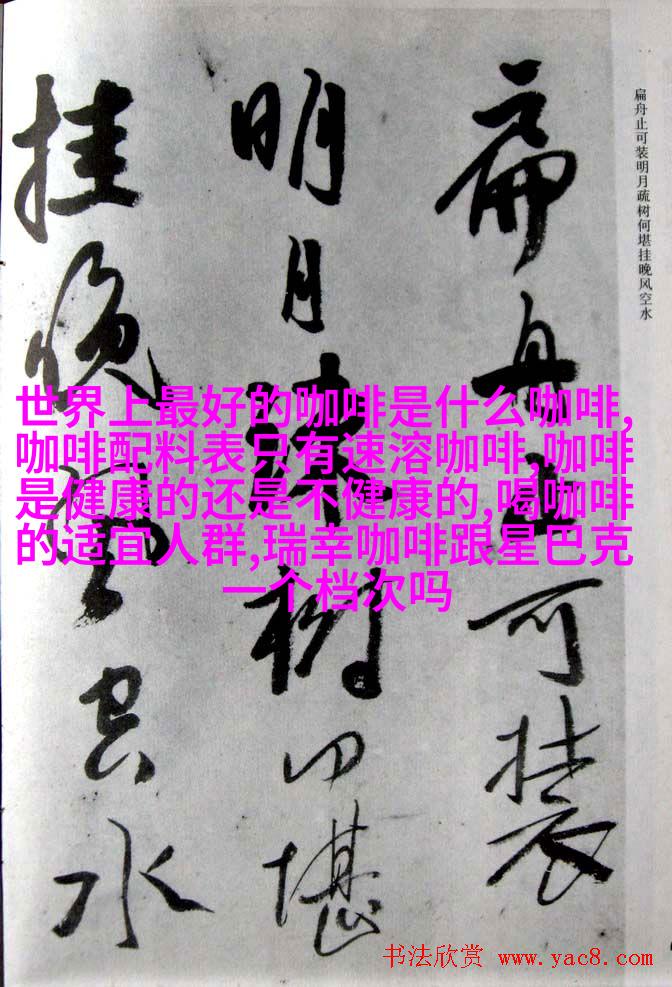 扁舟止可装
明月疏树何堪
挂晚风空水
扁舟止可装明月疏树何堪挂晚风空水
世界上最好的咖啡是什么咖啡,
咖啡配料表只有速溶咖啡,咖啡
是健康的还是不健康的,喝咖啡
的适宜人群,瑞幸咖啡跟星巴克
一个档次吗
书法欣赏 www.yac8.com